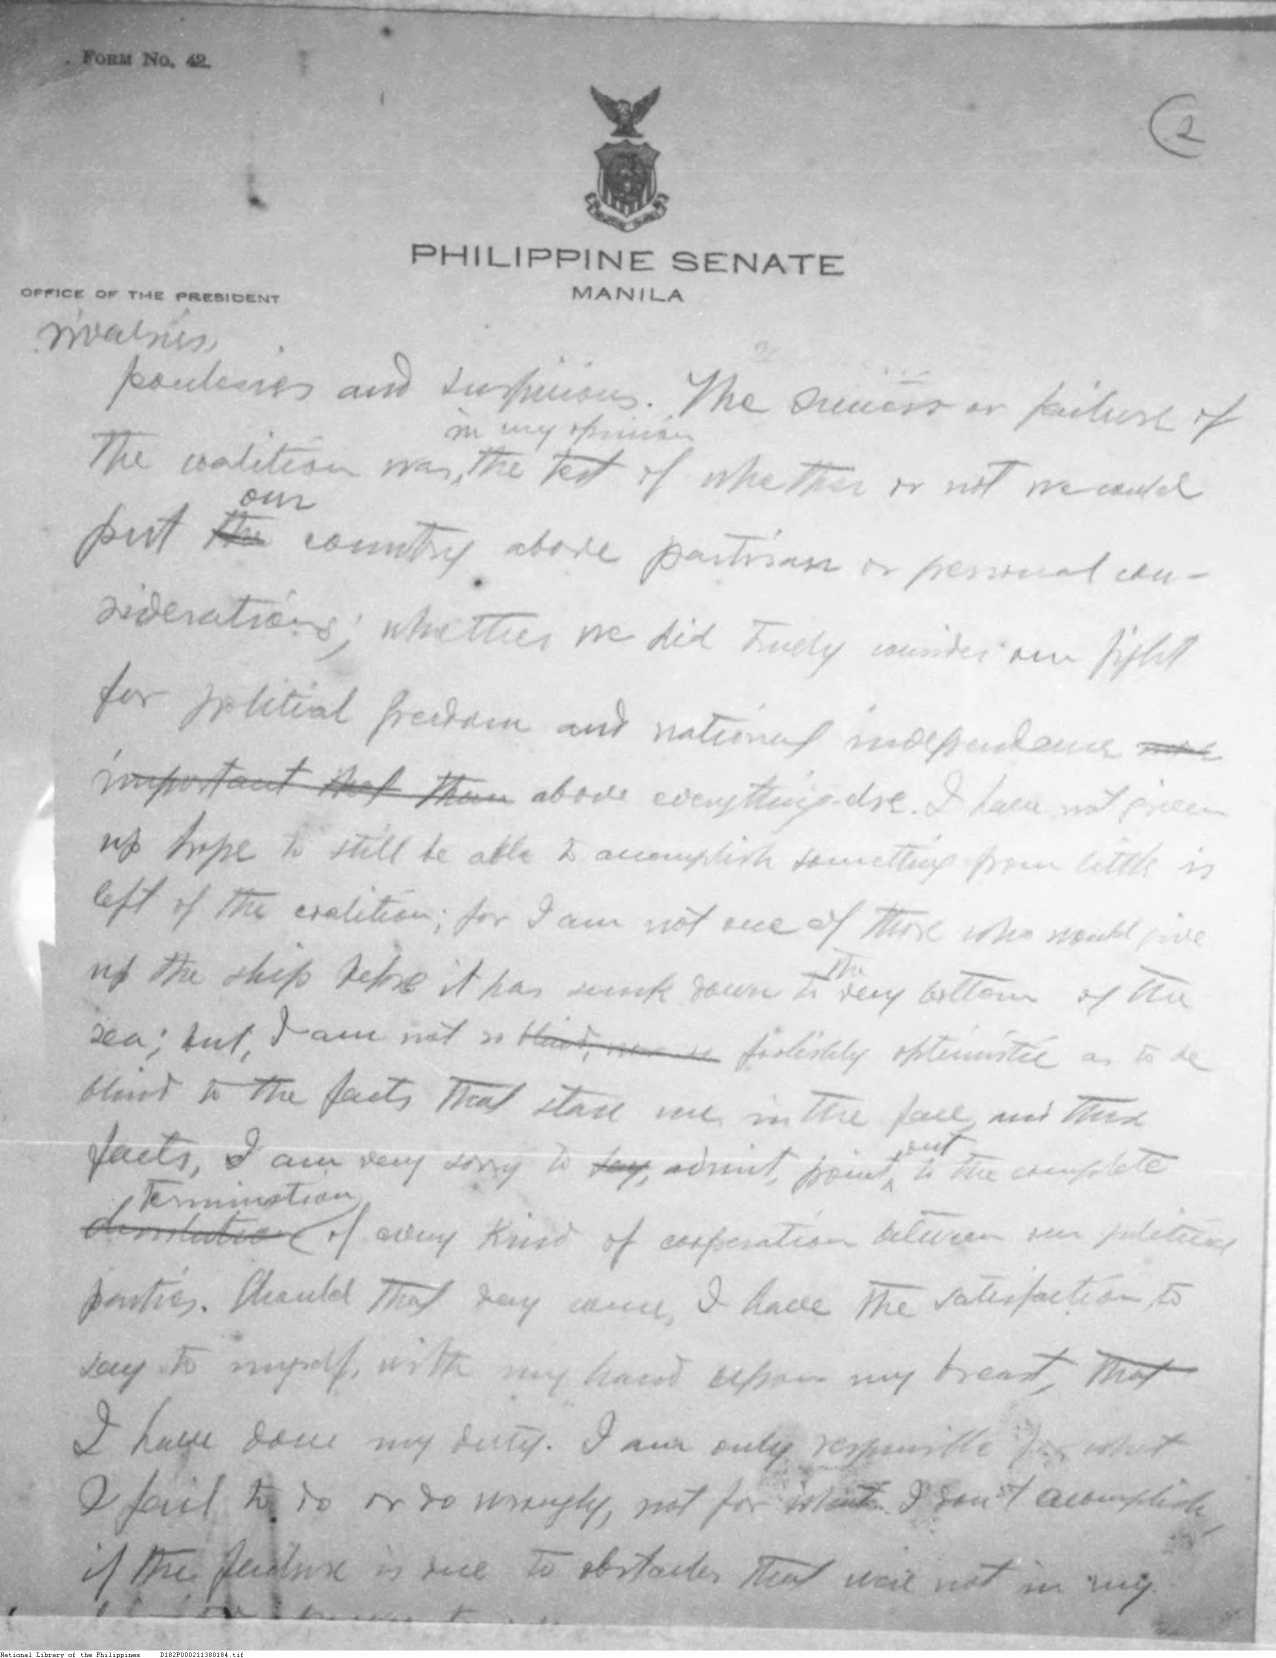 FORM NO. 42.
2
PHILIPPINE SENATE
MANILA
OFFICE OF THE PRESIDENT
rivalries,
and suspicions. The success or failure of
in my opinion
the coalition was, the test of whether or not we could
our
put the country above partisan or personal con-
siderations; whether we did truly consider our fight
for political freedom and national independence
important that than above everything else. I have not given
up hope to still be able to accomplish something from little is
left of the coalition; for I am not one of those who would give
the
up the ship before it has sunk down to very bottom of the
sea; but, I am not so blind, foolishly optimistic as to be
blind to the facts that stare me in the face, and these
out
facts, I am very sorry to say, admit, point, to the complete
termination
dissolution of every kind of cooperation between our political
parties. Should that day come, I have the satisfaction to
say to myself, with my hand upon my breast, that
I have done my duty. I am only responsible for what
I fail to do or do wrongly, not for what I don't accomplish,
if the failure is due to obstacles that were not in my
National Library of the Philippines D182P000211380184.tif